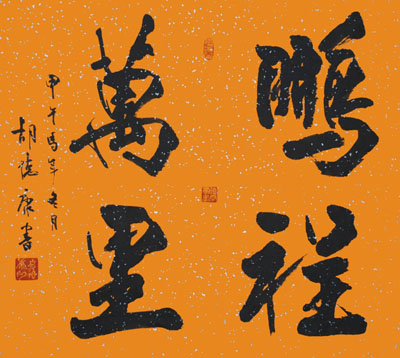 鵬程
萬里
甲午馬年冬月
胡德康書